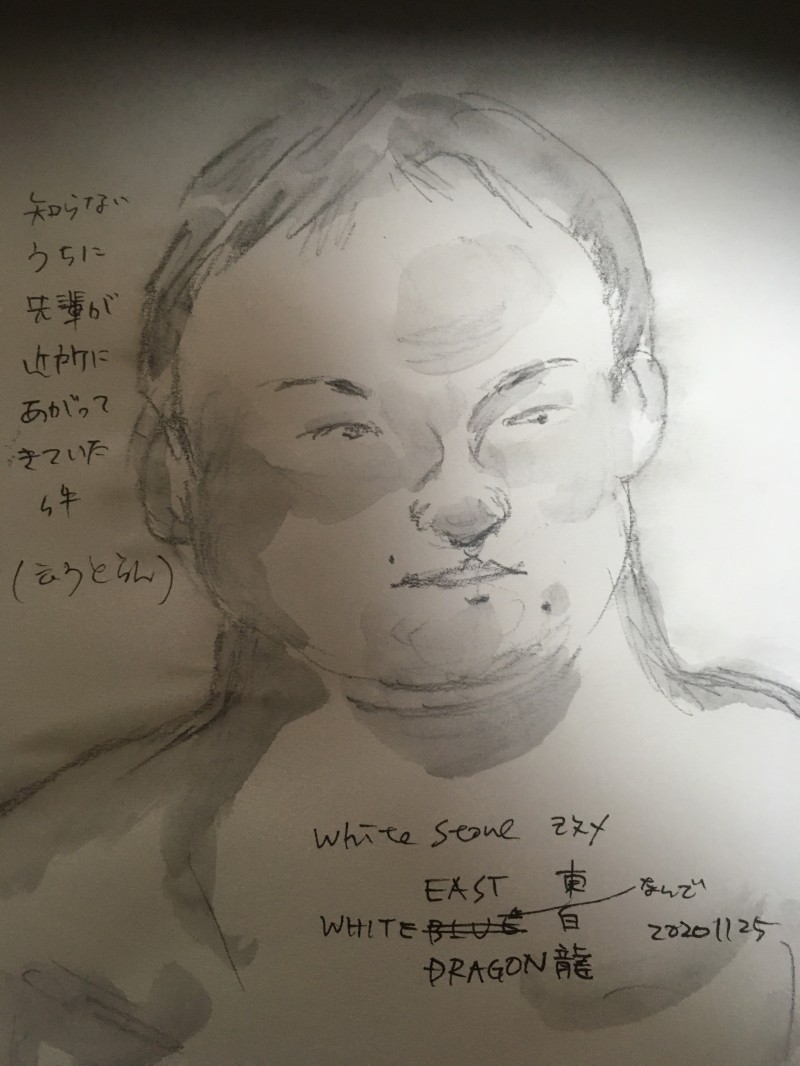 知らない
うちに
先輩が
近所に
あがって
きていた
件
White Stone
EAST 東 なんで
WHITE BLUE 白 20201125
DRAGON 龍